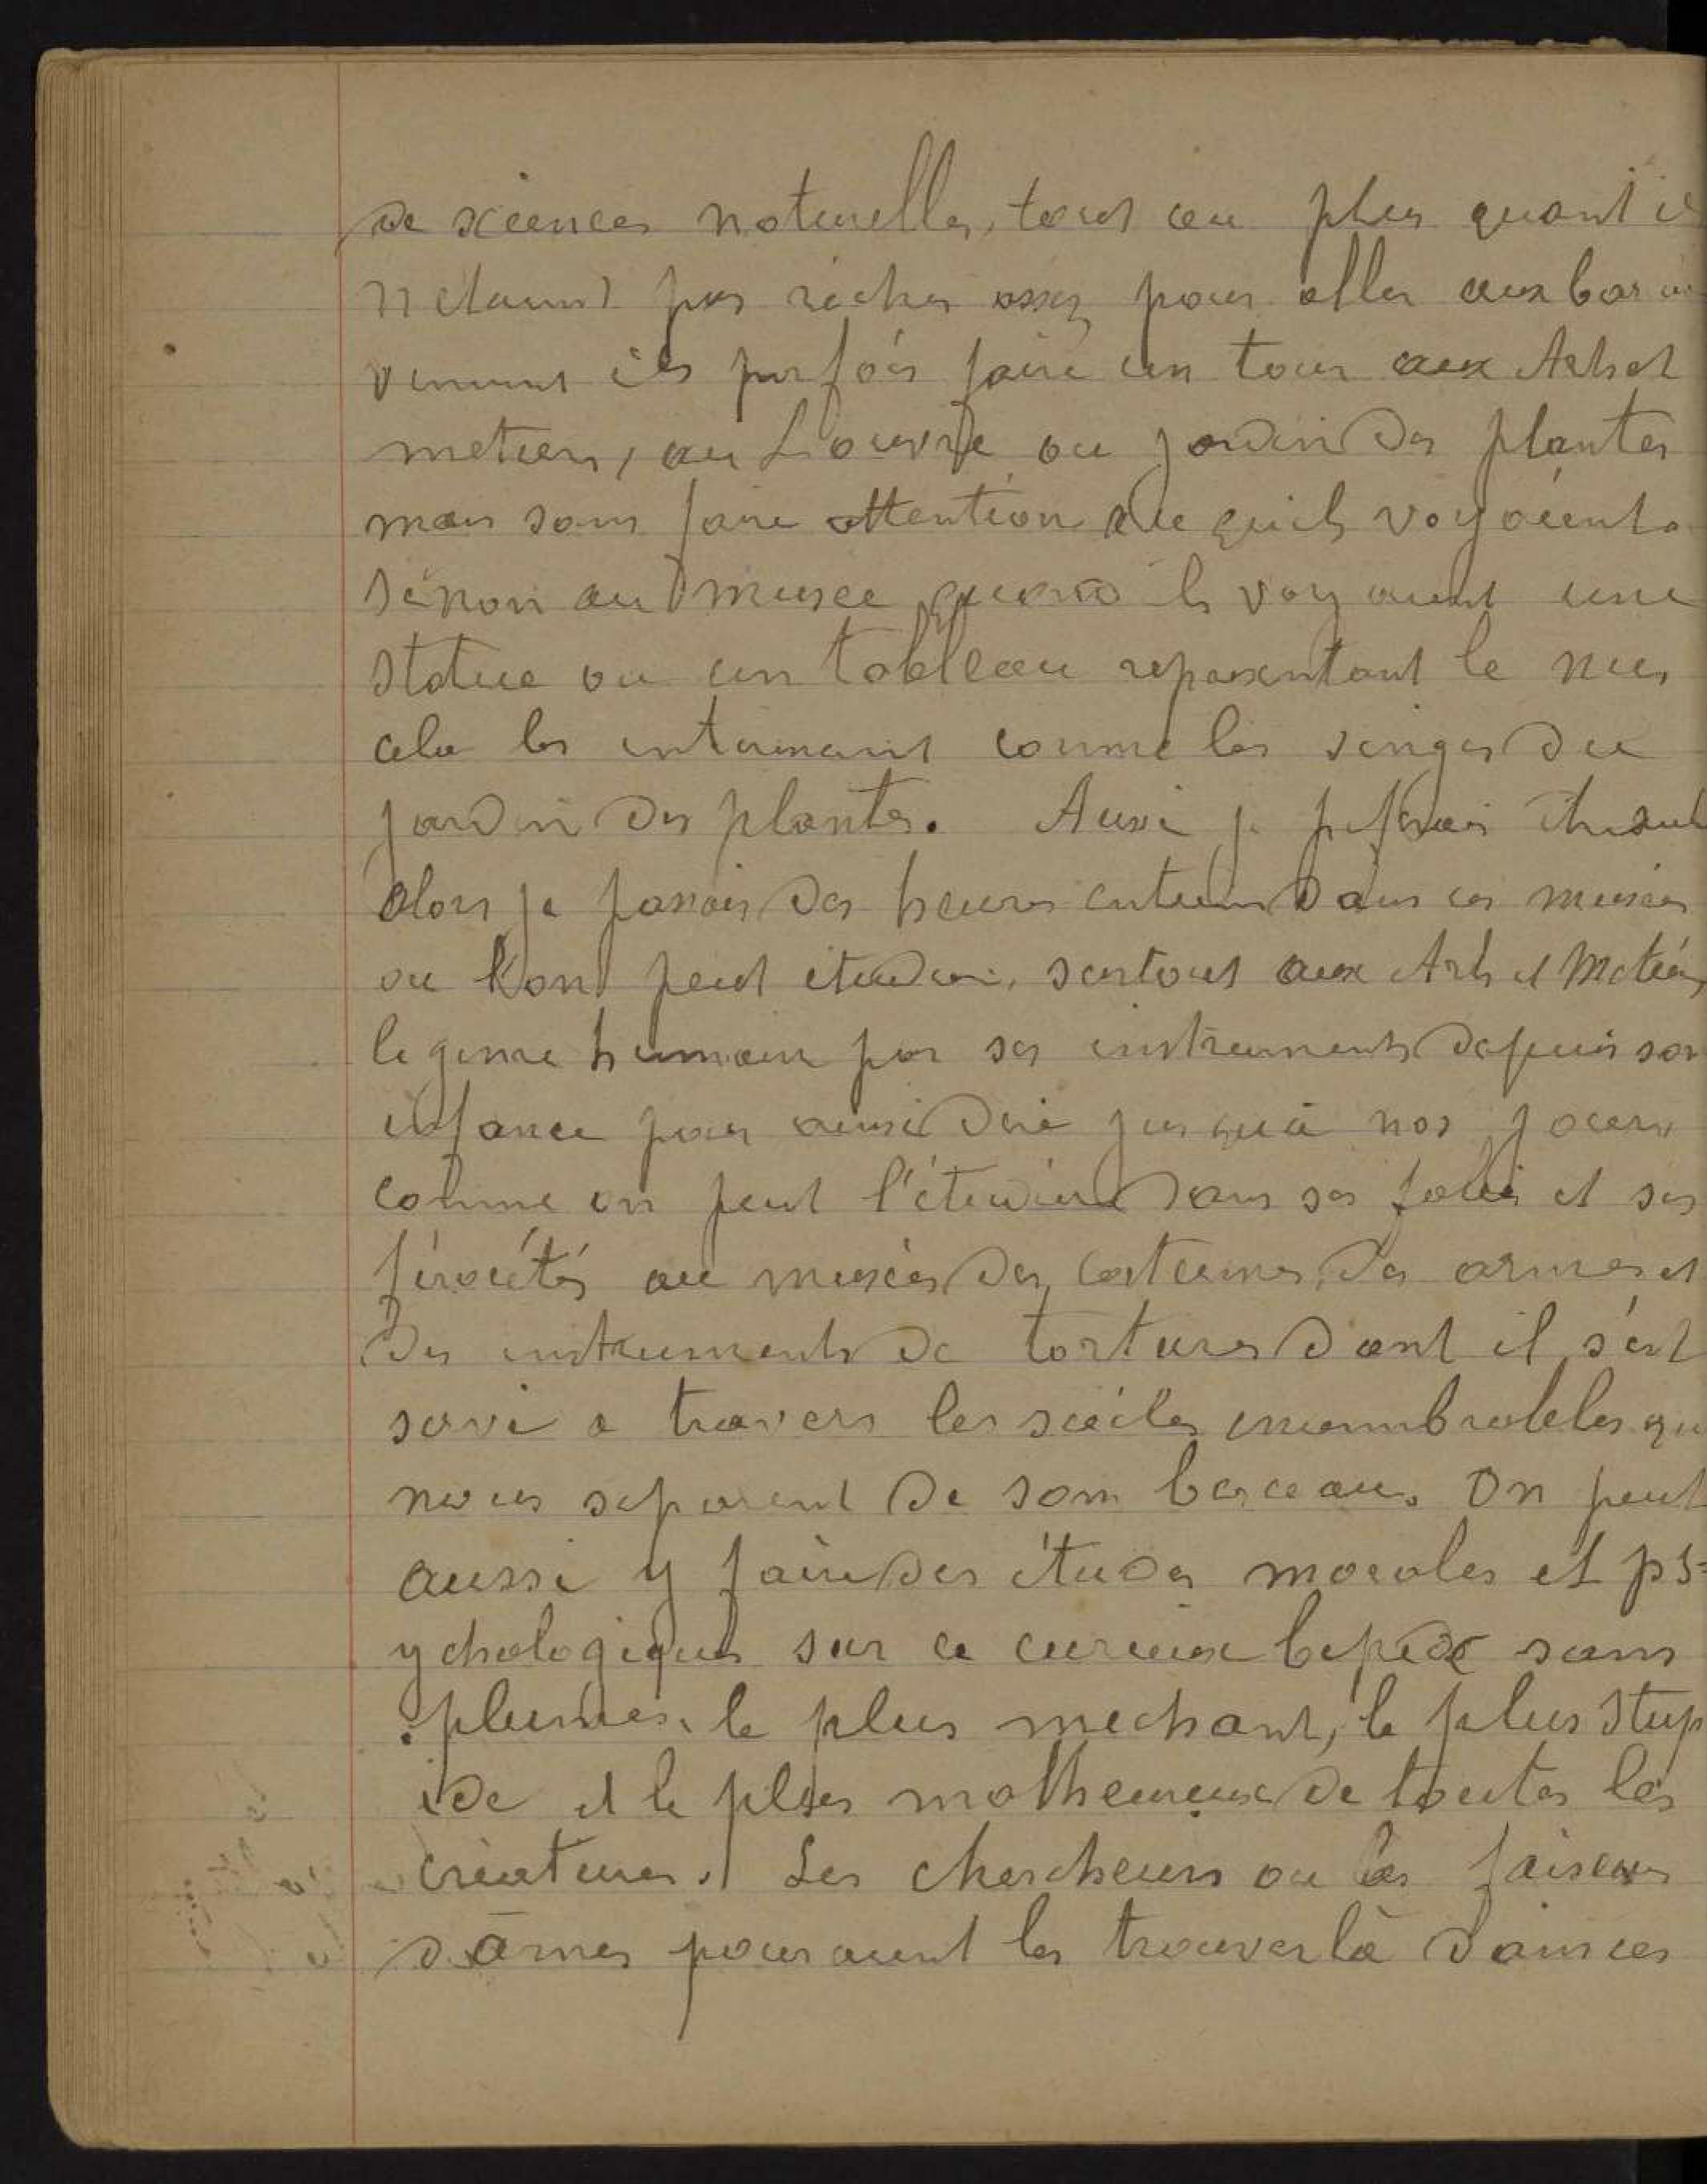 de sciences naturelles, tout au plus quant il
n'etaient pas riches assez pour aller aux bar
venaient ils parfois faire un tour aux Arts et
metiers, au Louvre au jardin des plantes
mais sans faire attention a ce qu'ils voyaient
sinon au musée quand ils voyaient une
statue ou un tableau representant le nu,
cela les interessaient comme les singes du
jardin des plantes. Aussi je preferais être seul
alors je passais des heures entieres dans ces musées
ou l'on peut etudier, surtout aux Arts et Metiers,
le genre humain par ses instruments depuis son
enfance pour ainsi dire jusqu'à nos jours
comme on peut l'étudier dans ses folies et ses
férocités au musées des costumes, des armes et
des instruments de tortures dont il s'est
servi a travers les siécles innombrables qui
nous separent de son berceau. On peut
aussi y faire des études morales et ps=
ychologiques sur ce curieux bipède sans
plumes, le plus mechant, le plus stup
ide et le plus malheureux de toutes les
créatures. Les chercheurs ou les faiseurs
d'âmes pouraient les trouver là dans ces